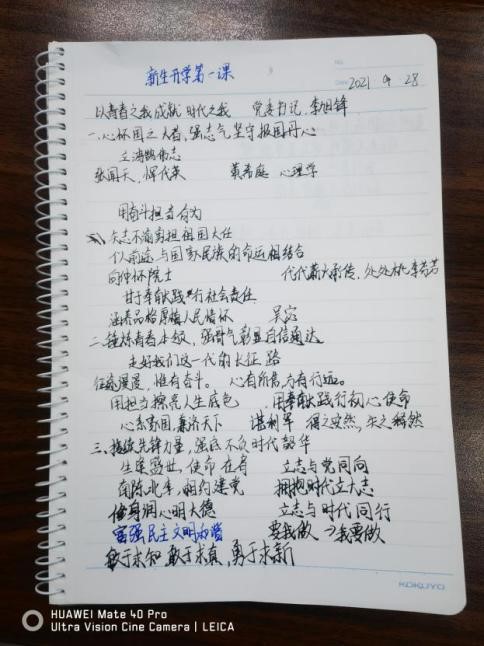 新生开学第一课
NO.
DATE 2021 9 28
以青春之我成就时代之我 党委书记、李旭锋
一、心怀国之大者,强志气坚守报国丹心
立鸿鹄伟志
张闻天、恽代英 黄希庭 心理学
用奋斗担当有为
矢志不渝勇担祖国大任
个人前途与国家民族的命运相结合
向仲怀院士 代代薪火相传,处处桃李芬芳
甘于奉献践行社会责任
涵养品格厚植人民情怀 吴宓
二、锤炼青春本领,强骨气彰显自信通达
走好我们这一代的长征路
征途漫漫,惟有奋斗。 心有所信,方有行远。
用担当擦亮人生底色 用奉献践行初心使命
心系家国兼济天下 谌利军 得之安然,失之
三、接续先锋力量,强底不负时代韶华
生逢盛世,使命在肩 立志与党同向
南陈北李,相约建党 拥抱时代立大志
修身润心明大德 立志与时代同行
富强民主文明和谐 要我做→我要做
敏于求知 敢于求真,勇于求新
KOKUYO
HUAWEI Mate 40 Pro
Ultra Vision Cine Camera | LEICA